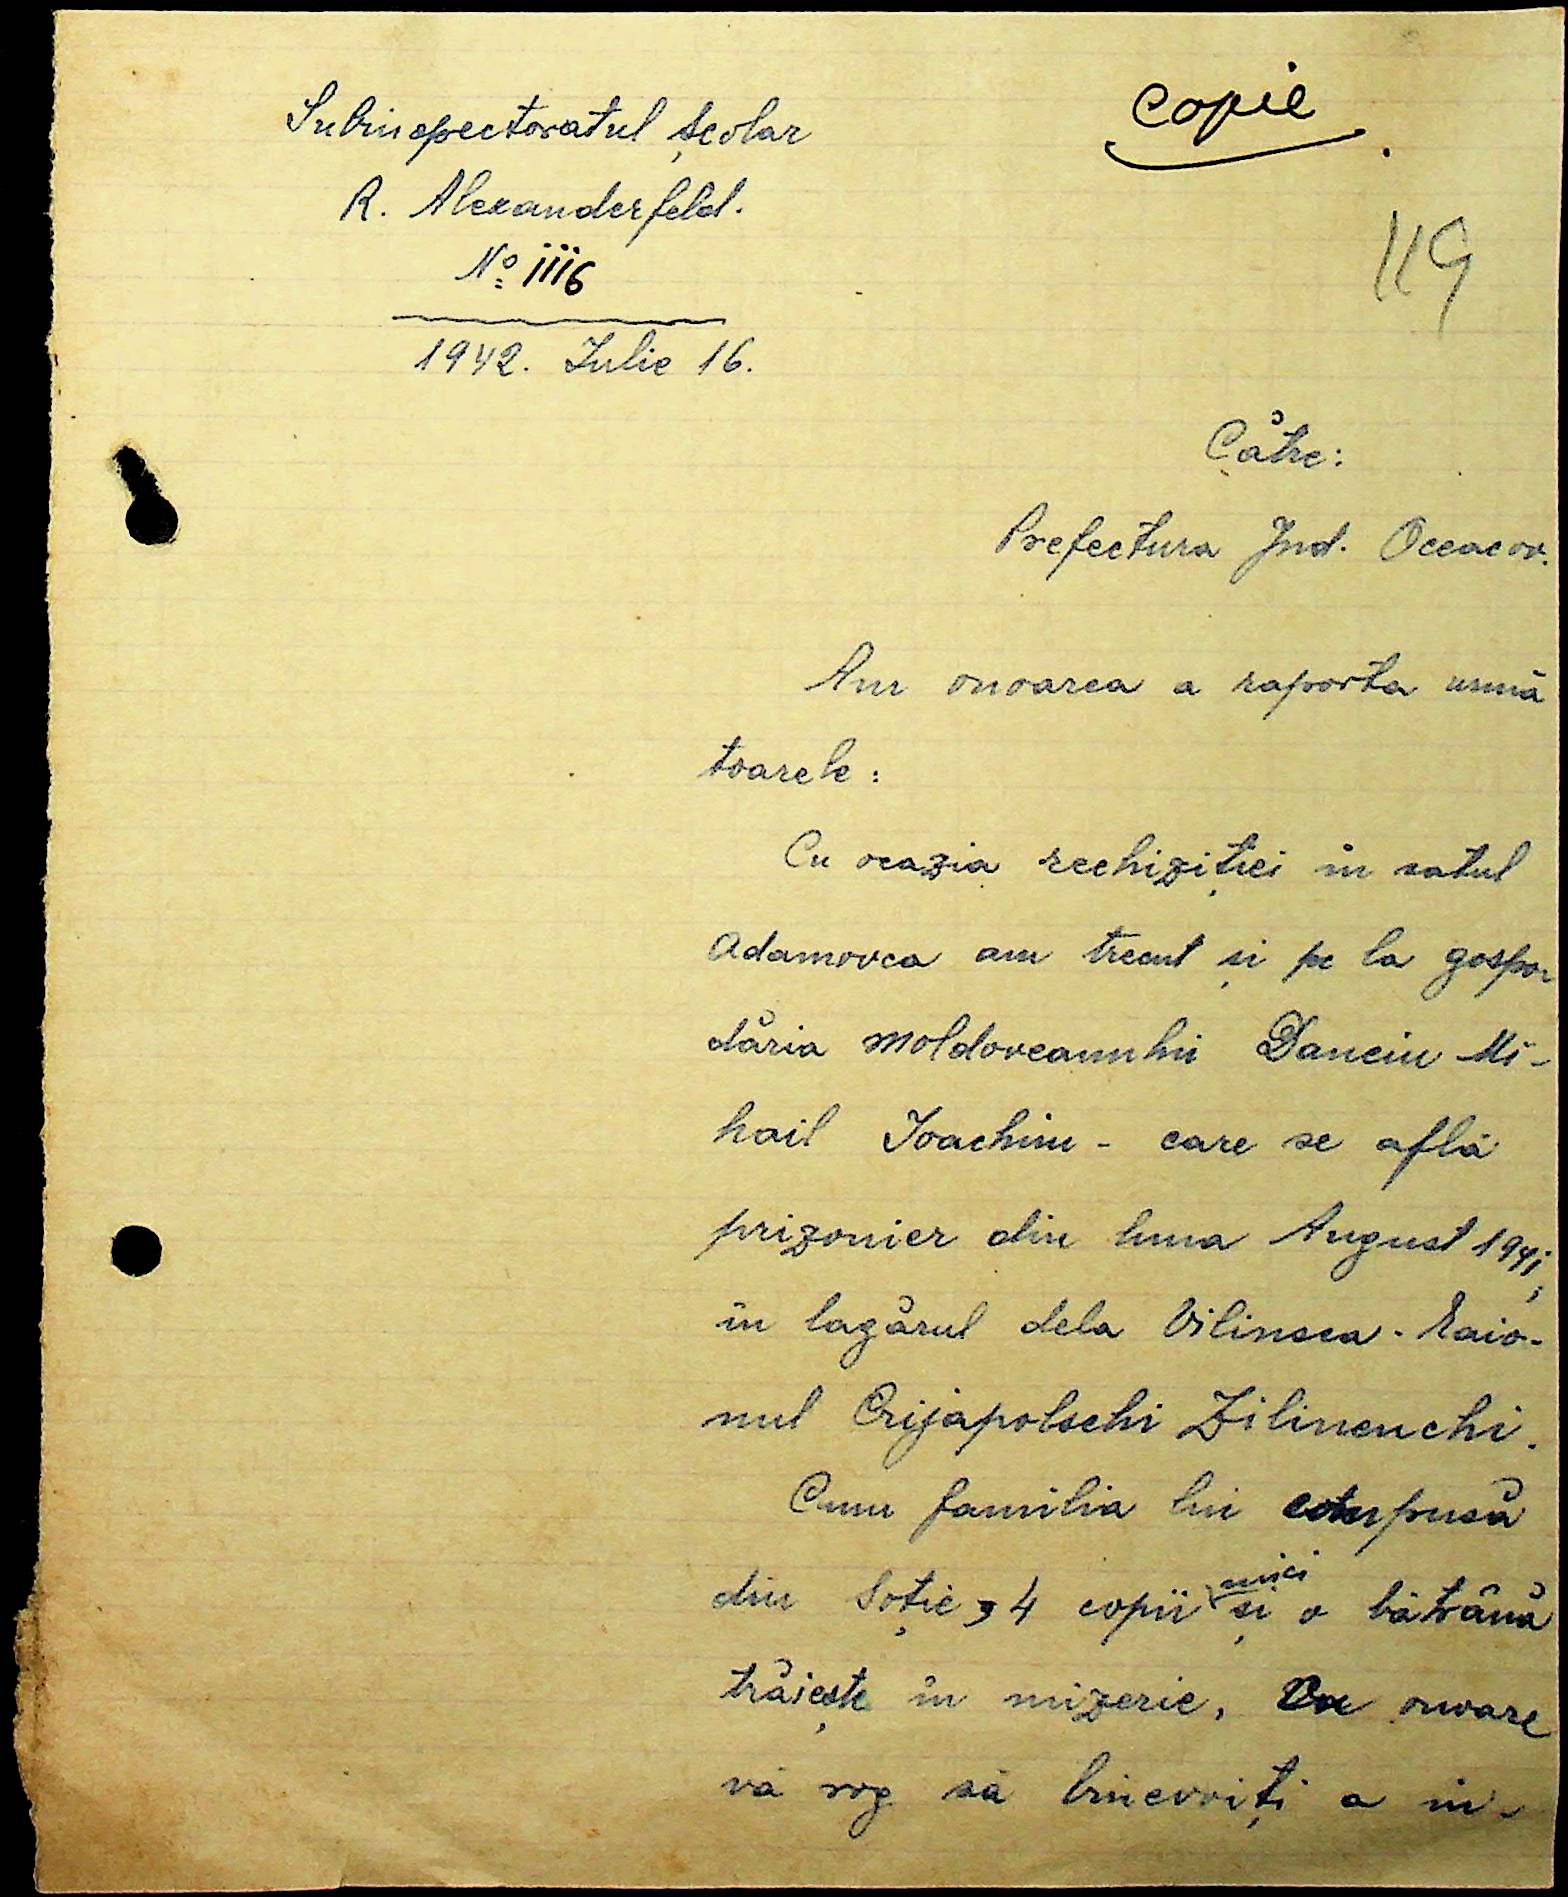 Subinspectoratul școlar
copie
R. Alexanderfeld.
No 1116
119
1942. Iulie 16.
Către:
Prefectura Jud. Oceacov.
Am onoarea a raporta urmă
toarele:
Cu ocazia rechiziției în satul
Adamovca am trecut și pe la gospo-
dăria moldoveanului Danciu Mi-
hail Ioachim - care se află
prizonier din luna August 1941,
în lagărul dela Vilinsca - Raio-
nul Crijapolschi Zilinenchi.
Cum familia lui compusă
din Soție, 4 copii mici și o bătrână
trăiește în mizerie, Cu onoare
vă rog să binevoiți a in-